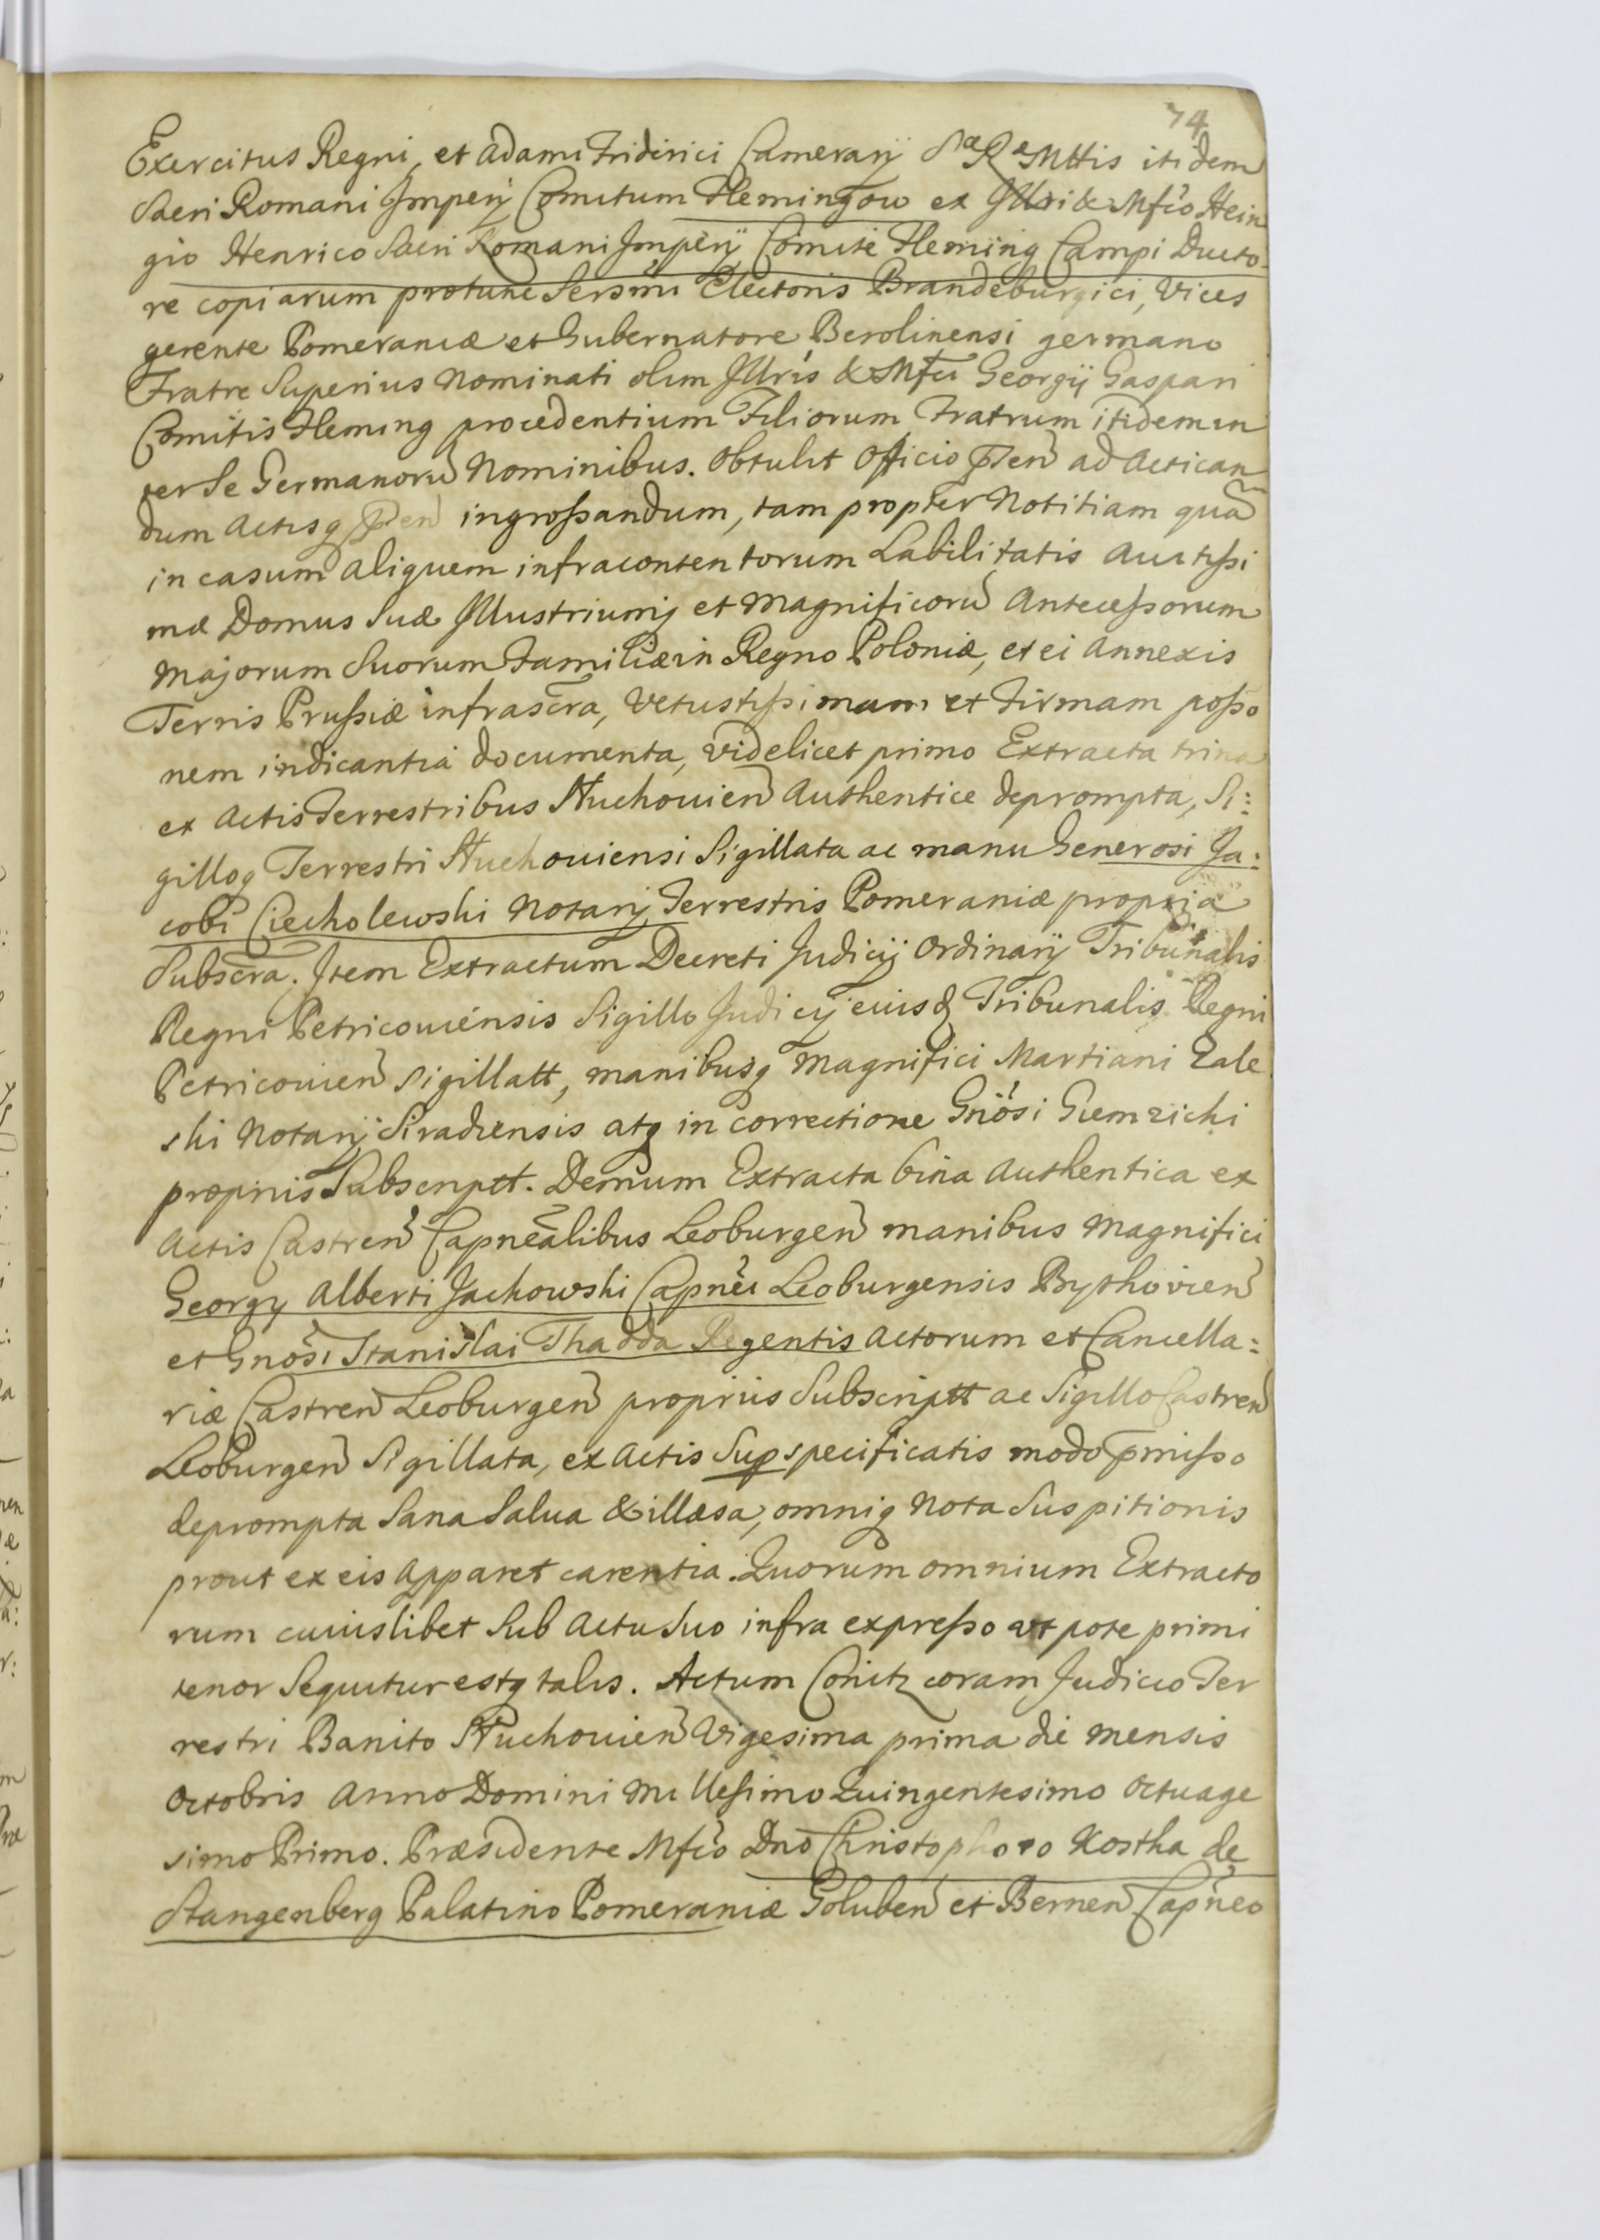 74
Exercitus Regni, et Adami Friderici Camerarij Sæ Ræ Mttis itidem
Sacri Romani Imperij Comitum Flemingow ex Illri & Mfco Hein
gio Henrico Sacri Romani Imperij Comite Fleming Campi Ducto
re copiarum protunc Sersmi Electoris Brandeburgici, Vices
gerente Pomeraniæ et Gubernatore Berolinensi germano
Fratre Superius Nominati olim Illris & Mfci Georgij Gaspari
Comitis Fleming procedentium Filiorum Fratrum itidem in
ter Se Germanorũ Nominibus. Obtulit Officio pñteñ ad Actican
dum Actisq pñteñ ingrossandum, tam propter Notitiam quã
in casum aliquem infracontentorum Labilitatis Auctissi
mæ Domus Suæ Illustriumq et Magnificorũ Antecessorum
Majorum Suorum Familiæ in Regno Poloniæ, et ei Annexis
Terris Prussiæ infrascra, Vetustissimam et Firmam posso
nem indicantia documenta, videlicet primo Extracta trina
ex Actis Terrestribus Stuchouieñ Authentice deprompta, Si:
gilloq Terrestri Stuchouiensi Sigillata ac manu Generosi Ja:
cobi Ciecholewski Notarij Terrestris Pomeraniæ propria
Subscra. Item Extractum Decreti Judicij Ordinarij Tribunalis
Regni Petricouiensis Sigillo Judicij eiusd Tribunalis Regni
Petricouieñ Sigillatt, manibusq Magnifici Martiani Zale
ski Notarij Siradiensis atq in correctione Gnosi Giemzicki
proprijs Subscriptt. Demum Extracta bina Authentica ex
Actis Castreñ Capnealibus Leoburgeñ manibus Magnifici
Georgy Alberti Jackowski Capnei Leoburgensis Bythovieñ
et Gnosi Stanislai Thadda Regentis Actorum et Cancella:
riæ Castreñ Leoburgeñ proprijs Subscriptt ac Sigillo Castreñ
Leoburgeñ Sigillata, ex Actis Sup specificatis modo pmisso
deprompta Sana Salua & illæsa, omniq Nota Suspitionis
prout ex eis Apparet carentia. Quorum omnium Extracto
rum cuiuslibet Sub Actu Suo infra expresso utpote primi
tenor Sequitur estq talis. Actum Conitz coram Judicio Ter
restri Banito Stuchouieñ Vigesima prima die Mensis
Octobris Anno Domini Millesimo Quingentesimo Octuage
simo Primo. Præsidente Mfco Dno Christophoro Kostka de
Stangenberg Palatino Pomeraniæ Golubeñ et Berneñ Capneo